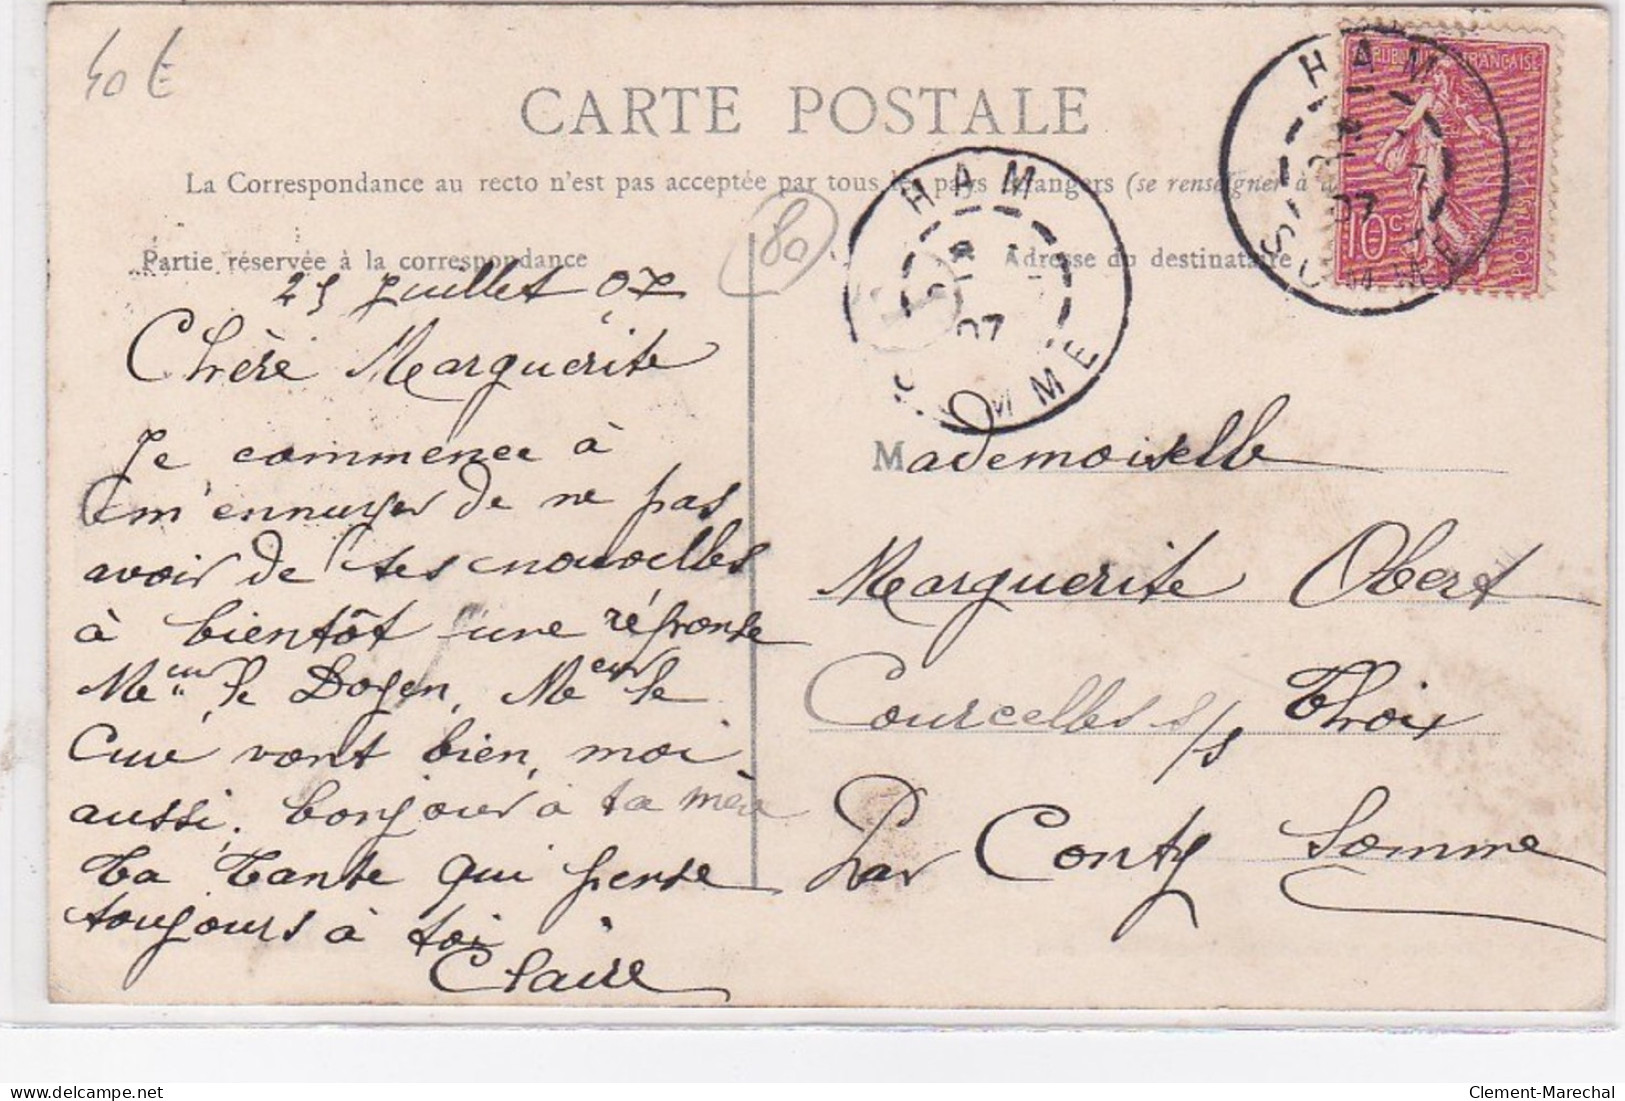 40 €
CARTE POSTALE
La Correspondance au recto n'est pas acceptée par tous les pays étrangers (se renseigner à
80
Partie réservée à la correspondance
Adresse du destinataire
HAM
07
SOMME
HAM
07
SOMME
REPUBLIQUE FRANÇAISE
10 c
POSTES
25 Juillet 07
Chère Marguerite
Je commence à
m'ennuyer de ne pas
avoir de tes nouvelles
à bientôt une réponse
Meur le Doyen, Meur le
Curé vont bien, moi
aussi, bonjour à ta mère
Ta Tante qui pense
toujours à toi
Claire
Mademoiselle
Marguerite Obert
Courcelles s/s Thoix
Par Conty Somme
Clement-Marechal